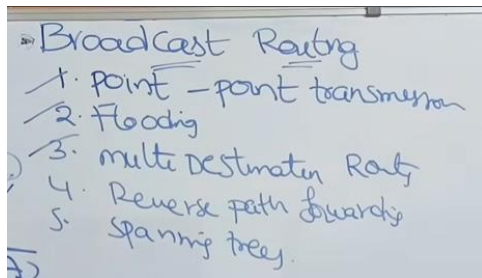 Broadcast Routng
1. point - point transmission
2. Flooding
3. multi Destination Routg
4. Reverse path forwarding
5. spanning trees.